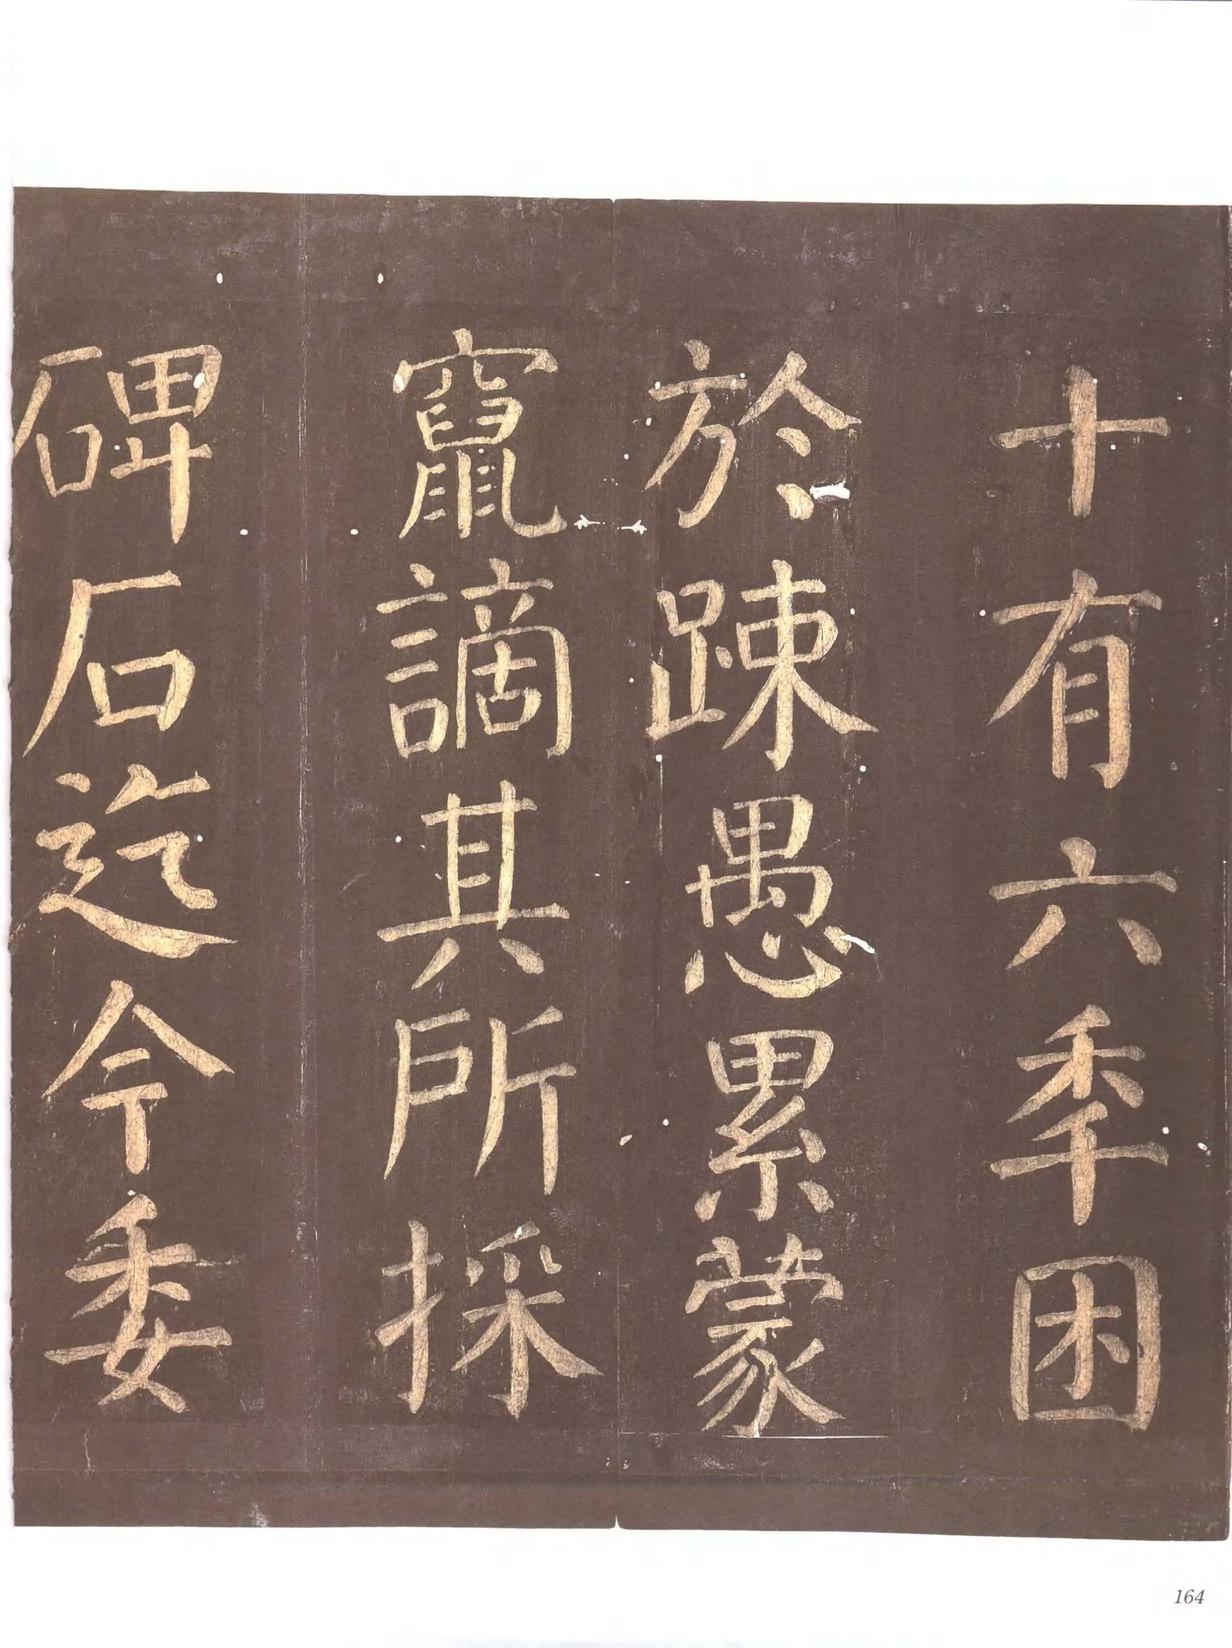 十有六季困
於踈愚累蒙
竄謫其所採
碑石迄今委
164